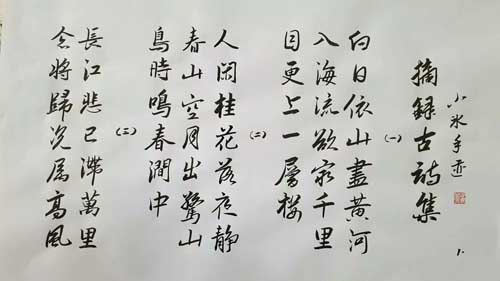 小冰手迹
摘録古詩集
(一)
白日依山盡黄河
入海流欲穷千里
目更上一層楼
(二)
人闲桂花落夜静
春山空月出驚山
鳥時鳴春澗中
(三)
長江悲已滯萬里
念將歸况属高風
1.